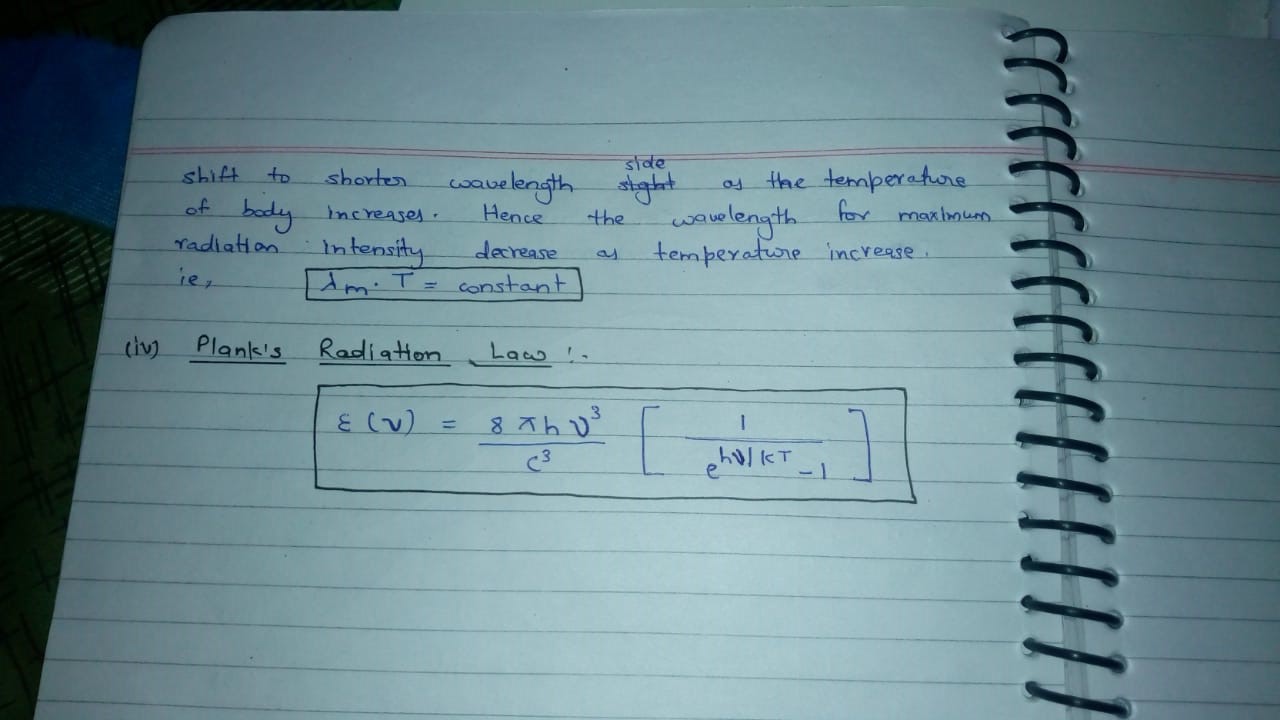 side
shift to shorter wavelength slight as the temperature
of body increases. Hence the wavelength for maximum
radiation intensity decrease as temperature increase.
ie, λm. T = constant
(iv) Plank's Radiation Law :-
ε(ν) = 8πhν³/c³ [ 1/(e^hν/kT - 1) ]